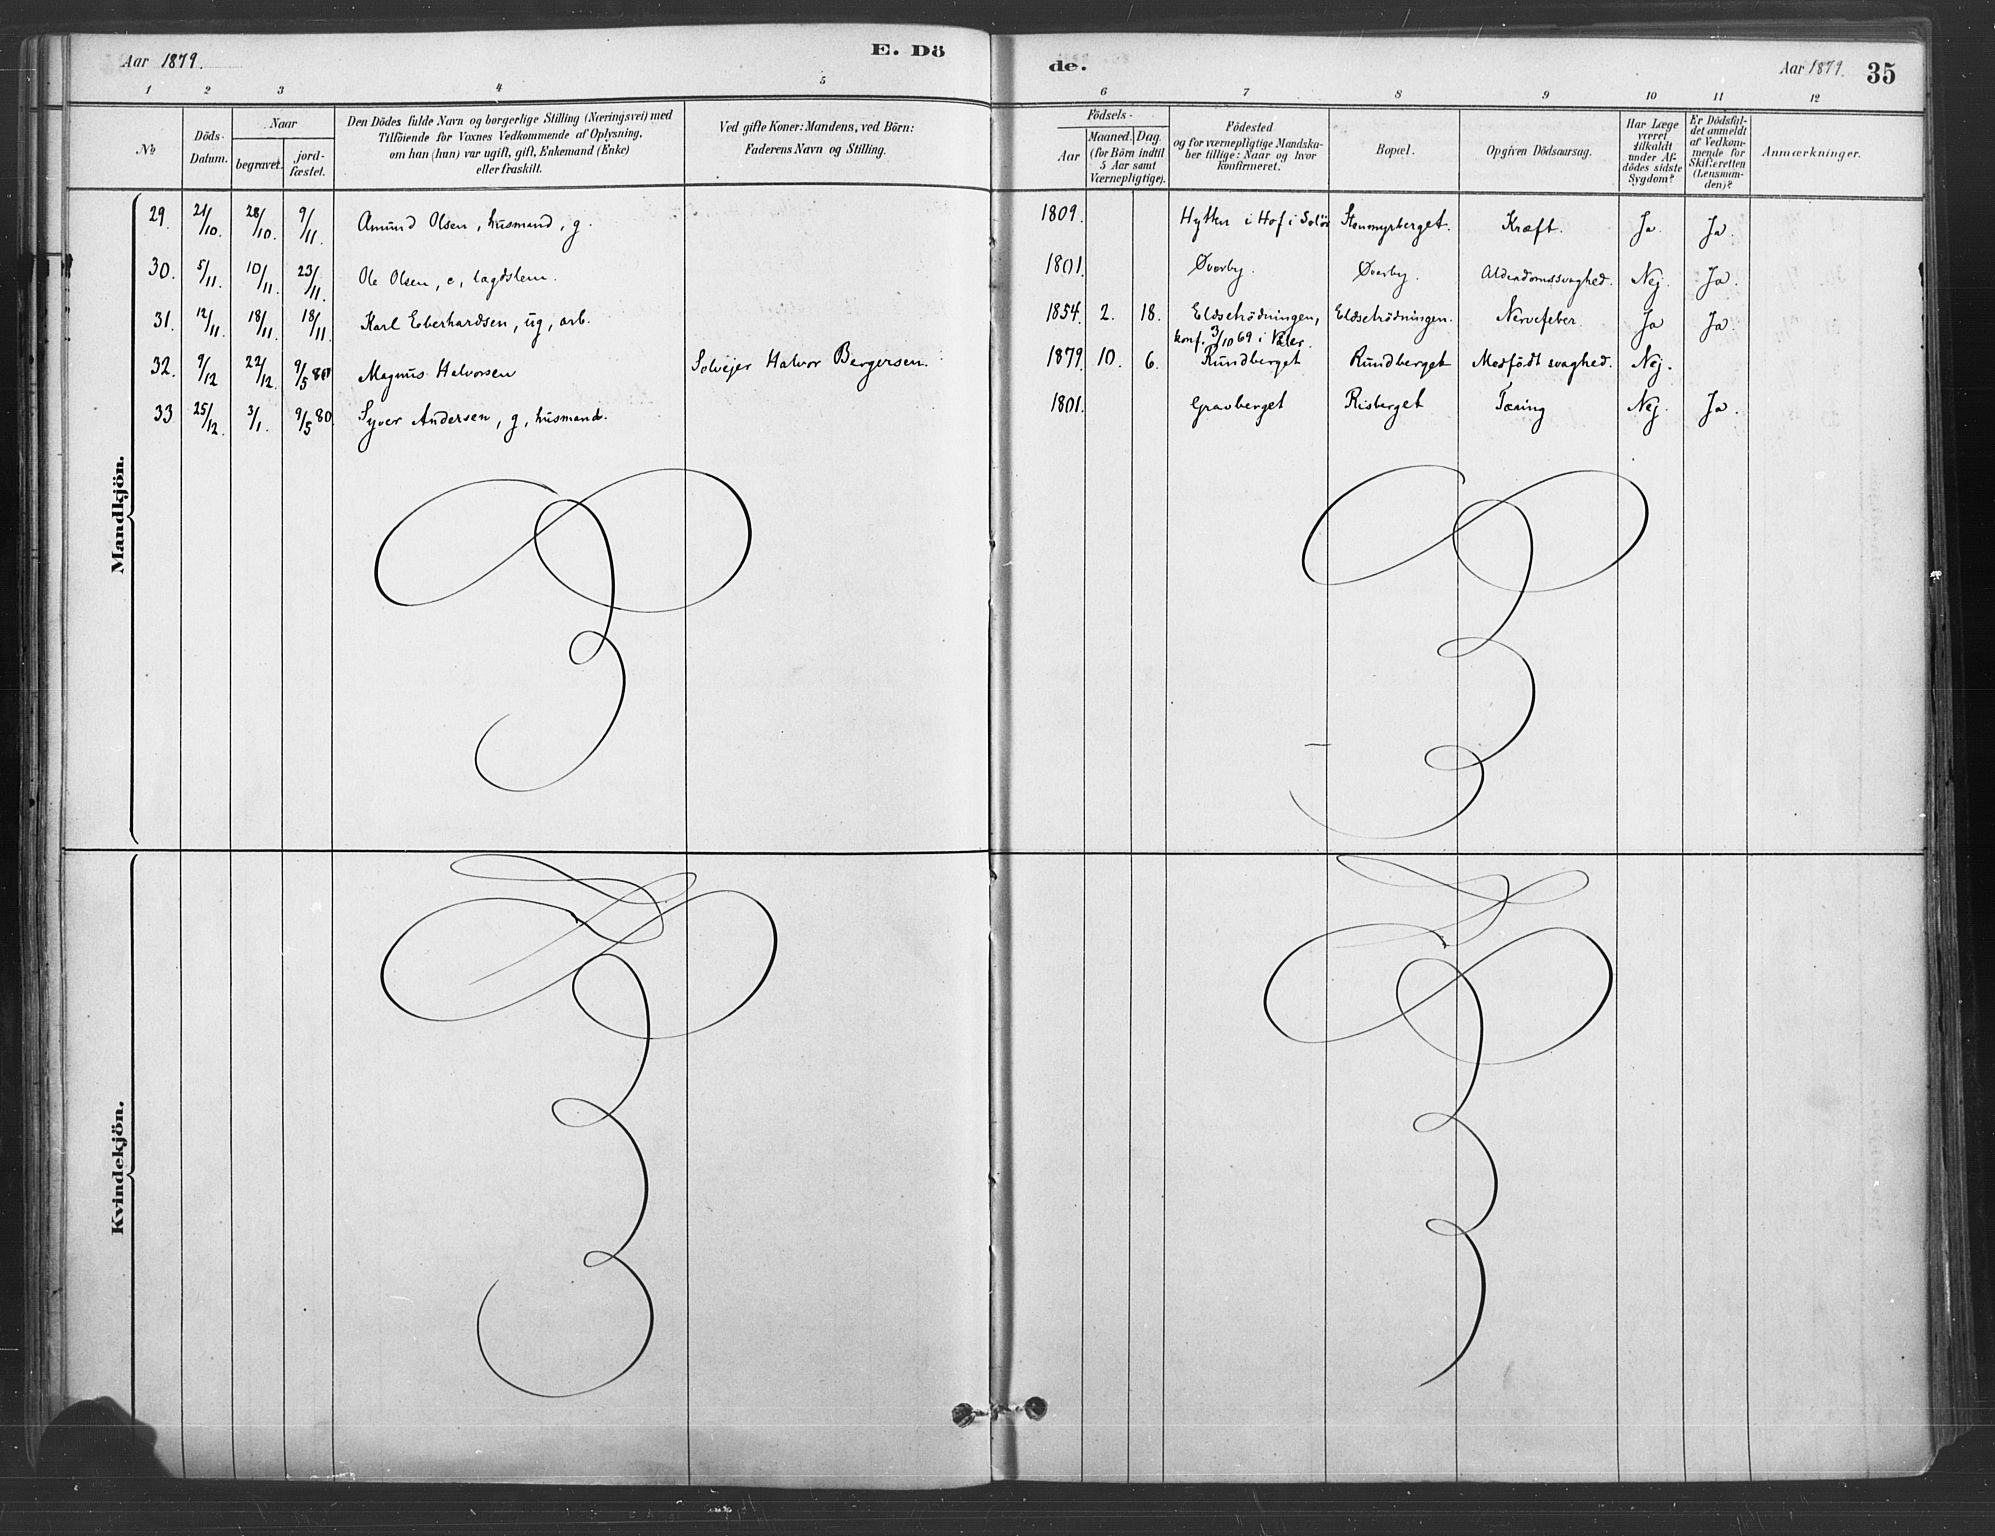 Aar 1879.
E. Dö
de.
Aar 1879.
35
1 2 3 4 5 6 7 8 9 10 11 12
No
Döds-
Datum.
Naar
begravet.
jord-
fæstet.
Den Dödes fulde Navn og borgerlige Stilling (Næringsvei) med
Tilföiende for Voxnes Vedkommende af Oplysning,
om han (hun) var ugift, gift, Enkemand (Enke)
eller fraskilt.
Ved gifte Koner: Mandens, ved Börn:
Faderens Navn og Stilling.
Födsels-
Aar
Maaned.
Dag.
(for Börn indtil
5 Aar samt
Værnepligtige).
Födested
og for værnepligtige Mandska-
ber tillige: Naar og hvor
konfirmeret.
Bopæl.
Opgiven Dödsaarsag.
Har Læge
været
tilkaldt
under Af-
dödes sidste
Sygdom?
Er Dödsfal-
det anmeldt
af Vedkom-
mende for
Skifteretten
(Lensman-
den)?
Anmærkninger.
Mandkjön.
29. 21/10. 28/10. 9/11. Amund Olsen, husmand, g. 1809. Hytten i Hof i Solör Stenmyrberget. Kræft. Ja. Ja.
30. 5/11. 10/11. 23/11. Ole Olsen, e, lægdslem. 1801. Øverby. Øverby. Alderdomssvaghed. Nej. Ja.
31. 12/11. 18/11. 18/11 Karl Eberhardsen, ug, arb. 1854. 2. 18. Eldsetrödningen, Eldsetrödningen. Nervefeber. Ja Ja.
konf. 3/10 69 i Våler.
32. 9/12 22/12. 9/5 80 Magnus Halvorsen Selvejer Halvor Bergersen. 1879. 10. 6. Rundberget Rundberget Medfödt svaghed. Nej.
33 25/12. 3/1. 9/5 80. Syver Andersen, g, husmand. 1801. Gravberget Risberget Tæring Nej. Ja.
Kvindekjön.